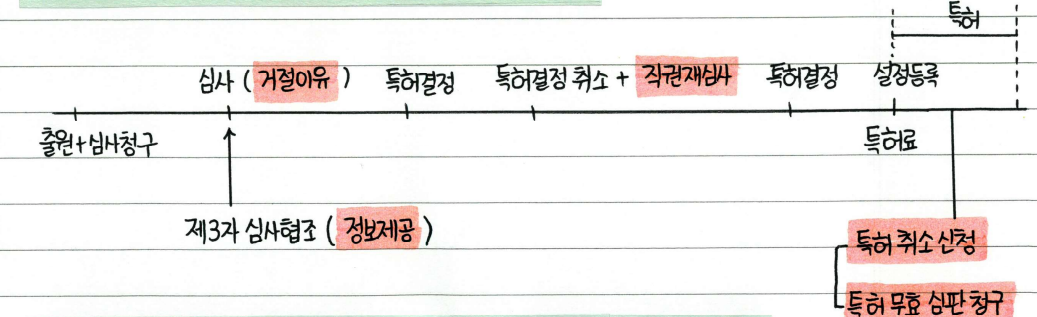 특허
심사 ( 거절이유 ) 특허결정 특허결정 취소 + 직권재심사 특허결정 설정등록
출원+심사청구 특허료
제3자 심사협조 ( 정보제공 )
특허 취소 신청
특허 무효 심판 청구